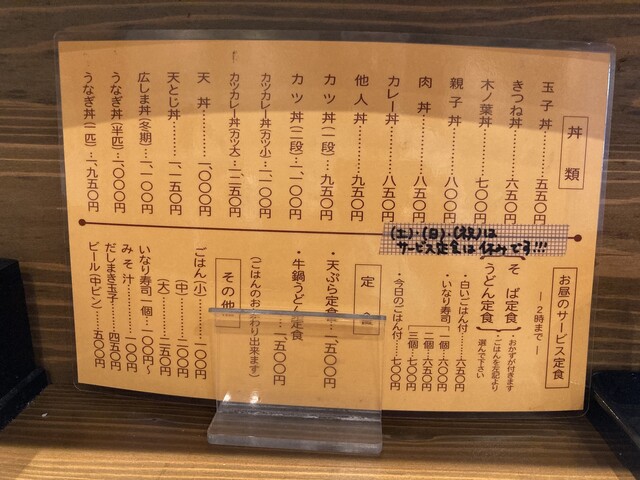 丼類
玉子丼………五五〇円
きつね丼………六五〇円
木ノ葉丼………七〇〇円
親子丼………八〇〇円
肉丼………八五〇円
カレー丼………八五〇円
他人丼………九五〇円
カツ丼(一段)…九五〇円
カツ丼(二段)…一、一〇〇円
カツカレー丼(カツ小)…一、一〇〇円
カツカレー丼(カツ大)…一、二五〇円
天丼………一、〇〇〇円
天とじ丼………一、一五〇円
広しま丼(冬期)…一、一〇〇円
うなぎ丼(半匹)…一、〇〇〇円
うなぎ丼(一匹)…一、九五〇円
(土)・(日)・(祝)は
サービス定食は休みです!!!
お昼のサービス定食
―2時まで―
そば定食
うどん定食
・おかずが付きます
・ごはんを左記より
選んで下さい
・白いごはん付……六五〇円
・いなり寿司 一個…六〇〇円
二個…六五〇円
三個…七〇〇円
・今日のごはん付……七〇〇円
定
・天ぷら定食…一、五〇〇円
・牛鍋うどん定食
…一、五〇〇円
(ごはんのおかわり出来ます)
その他
ごはん(小)…一〇〇円
(中)…二〇〇円
(大)…二五〇円
いなり寿司一個…一〇〇円〜
みそ汁………一〇〇円
だしまき玉子……四五〇円
ビール(中ビン)…五〇〇円